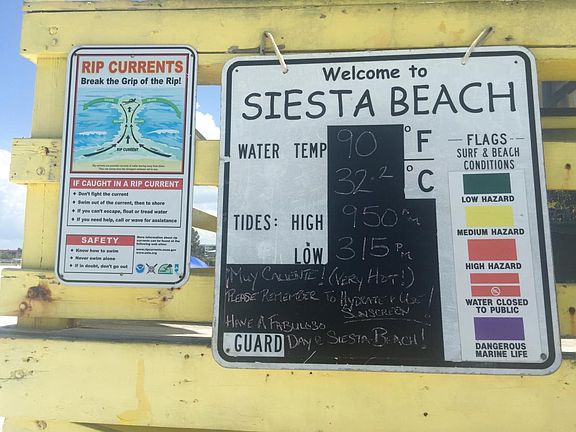 RIP CURRENTS
Break the Grip of the Rip!
RIP CURRENT
IF CAUGHT IN A RIP CURRENT
Don't fight the current
Swim out of the current, then to shore
If you can't escape, float or tread water
If you need help, call or wave for assistance
SAFETY
Know how to swim
Never swim alone
If in doubt, don't go out
More information about rip
currents can be found at the
following web sites:
Welcome to
SIESTA BEACH
WATER TEMP 90 °F
32.2 °C
TIDES: HIGH 950 AM
LOW 315 PM
¡MUY CALIENTE! (VERY HOT!)
PLEASE REMEMBER TO HYDRATE & USE
SUNSCREEN!
HAVE A FABULOSO
GUARD DAY @ SIESTA BEACH!
FLAGS
SURF & BEACH
CONDITIONS
LOW HAZARD
MEDIUM HAZARD
HIGH HAZARD
WATER CLOSED
TO PUBLIC
DANGEROUS
MARINE LIFE